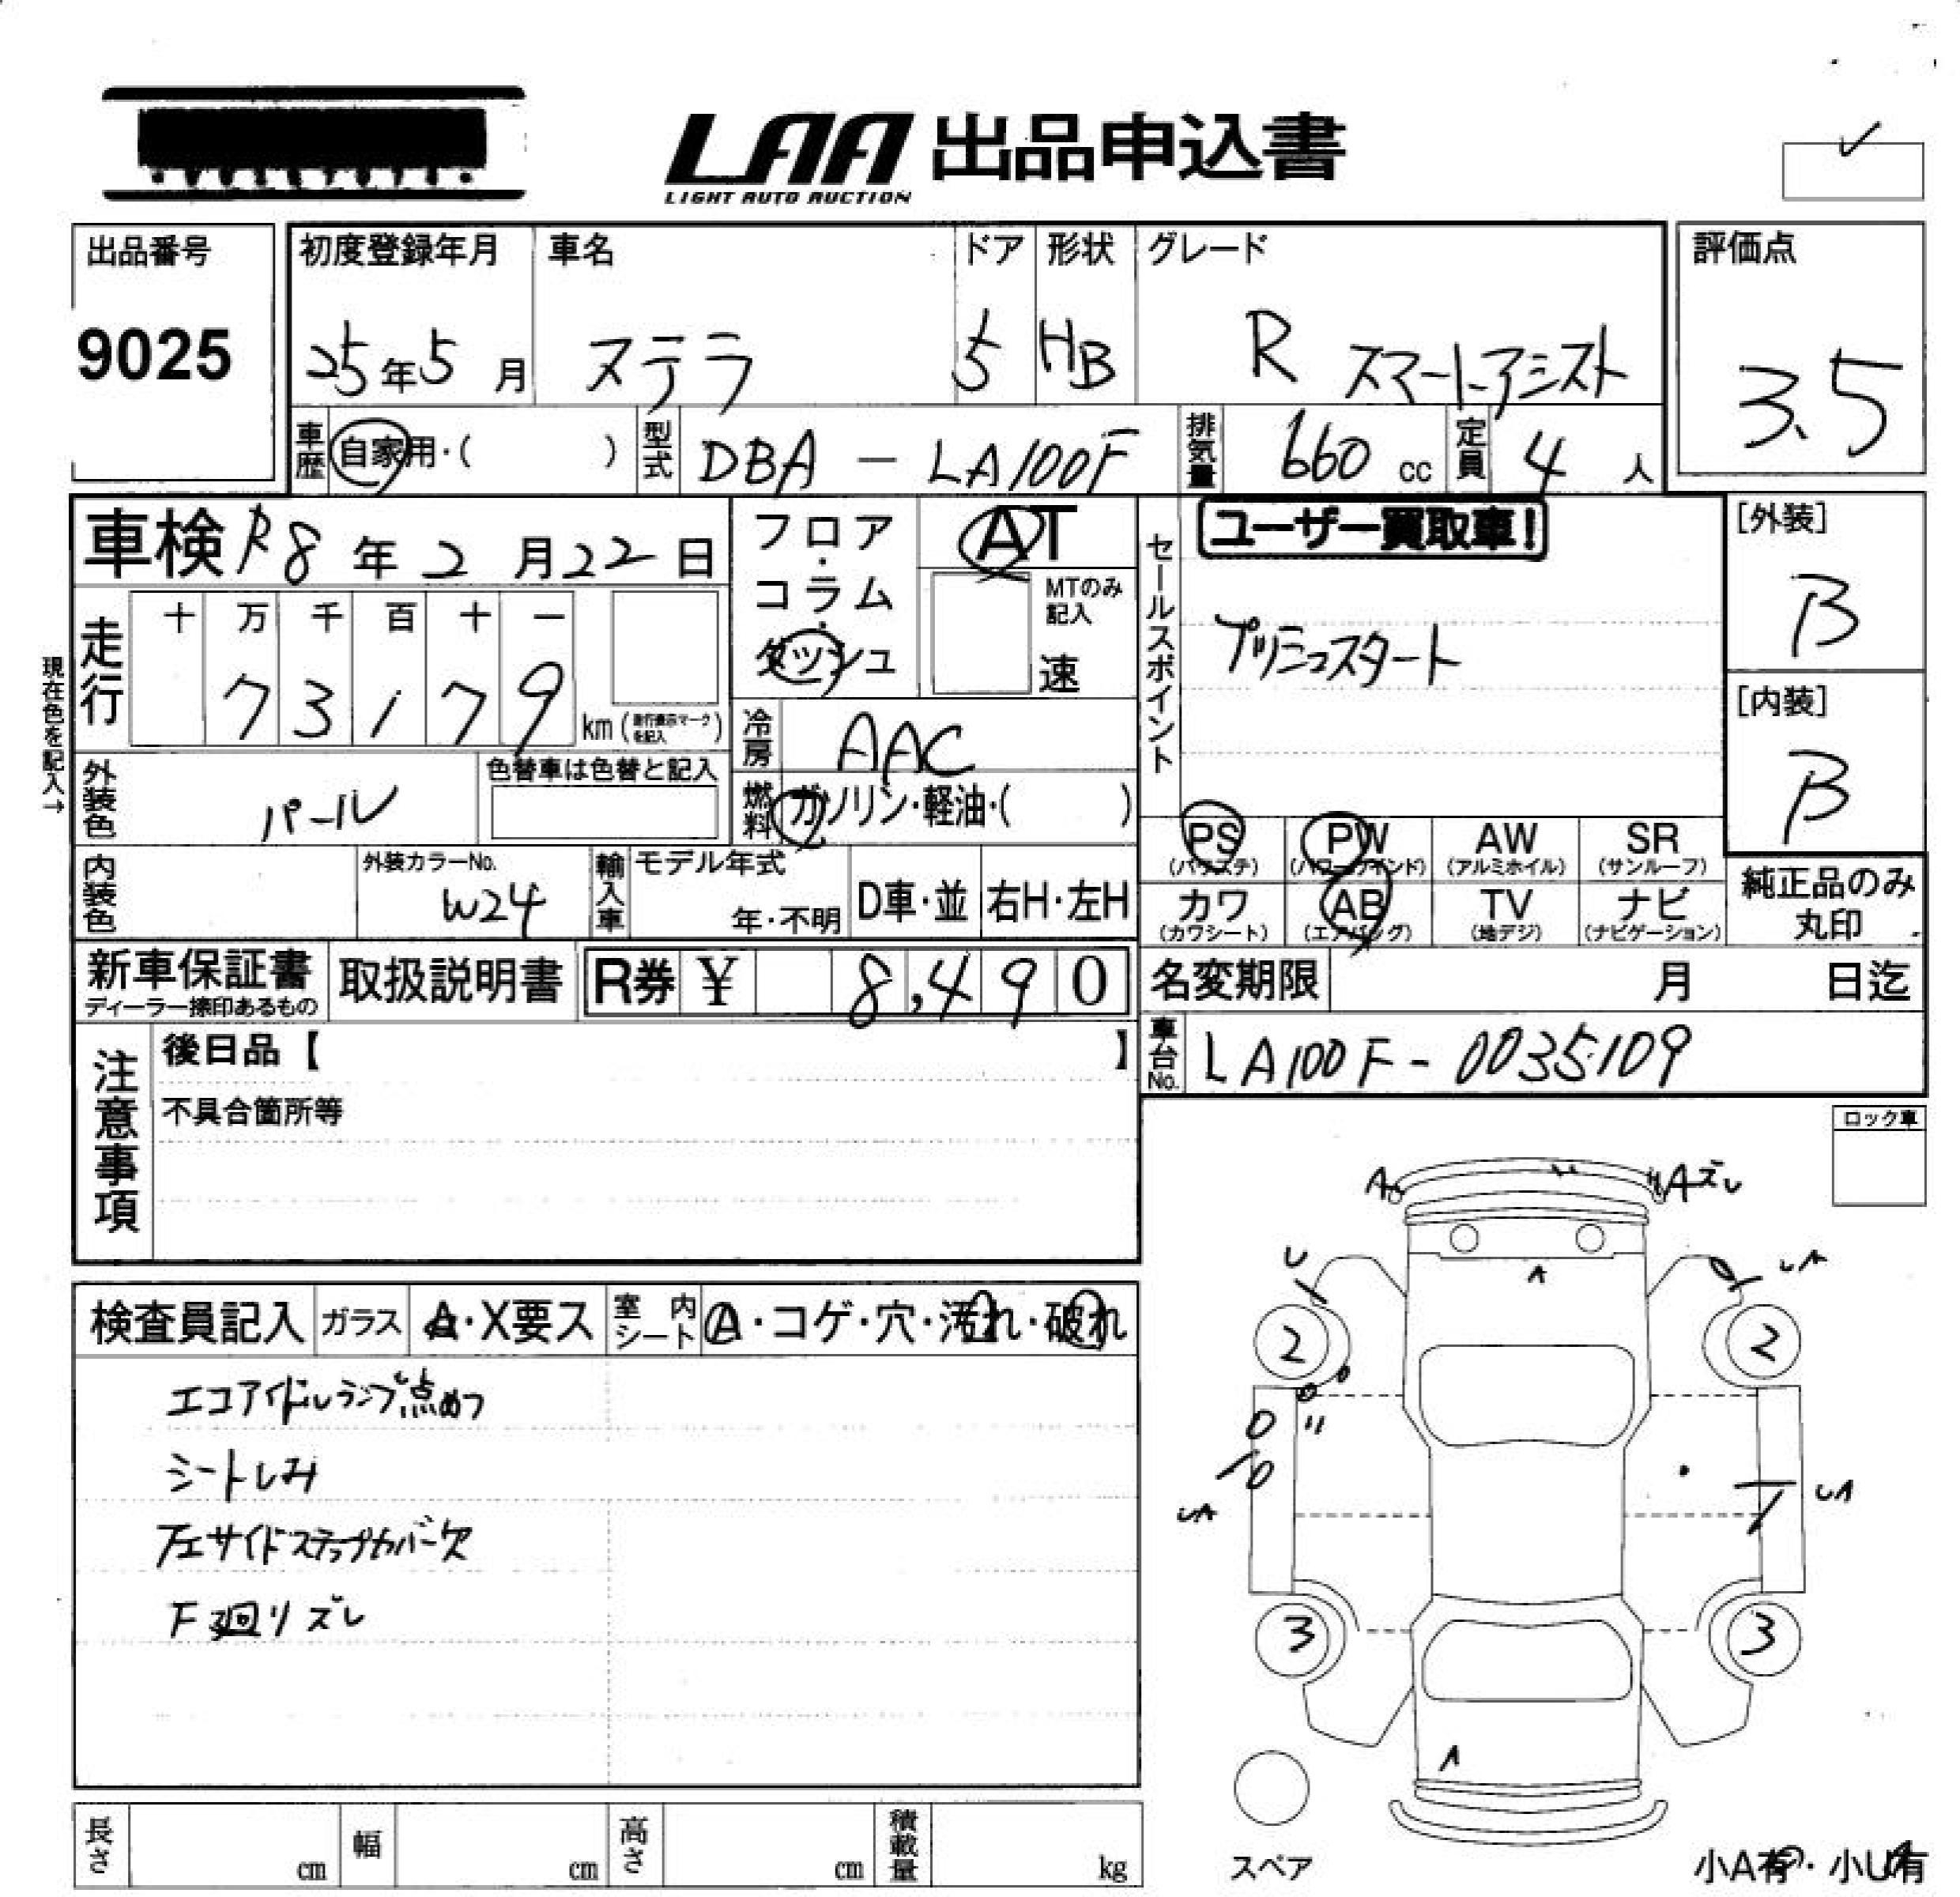 LAA 出品申込書
LIGHT AUTO AUCTION
出品番号
9025
初度登録年月
25年5月
車名
ステラ
ドア
5
形状
HB
グレード
R スマートアシスト
評価点
3.5
車歴
自家用・( )
型式
DBA - LA100F
排気量
660 cc
定員
4 人
車検 R8年2月22日
フロア・コラム・ダッシュ
AT
MTのみ記入
速
セールスポイント
ユーザー買取車!
プッシュスタート
[外装]
B
[内装]
B
現在色を記入→
走行
十 万 千 百 十 一
7 3 1 7 9
km (走行表示マークを記入)
冷房
AAC
燃料
ガソリン・軽油・( )
外装色
パール
色替車は色替と記入
内装色
外装カラーNo.
W24
輸入車
モデル年式
年・不明
D車・並
右H・左H
PS
(パワステ)
PW
(パワーウインド)
AW
(アルミホイル)
SR
(サンルーフ)
カワ
(カワシート)
AB
(エアバッグ)
TV
(地デジ)
ナビ
(ナビゲーション)
純正品のみ
丸印
新車保証書
ディーラー捺印あるもの
取扱説明書
R券 ¥ 8,490
名変期限 月 日迄
車台No.
LA100F-0035109
注意事項
後日品【 】
不具合箇所等
ロック車
検査員記入
ガラス
A・X要ス
室内シート
A・コゲ・穴・汚れ・破れ
エコアイドルランプ点めつ
シートしみ
左サイドステップカバー欠
F廻りズレ
A
Aズレ
U
A
UA
2
2
UA
UA
3
3
A
スペア
小A有・小U有
長さ
cm
幅
cm
高さ
cm
積載量
kg